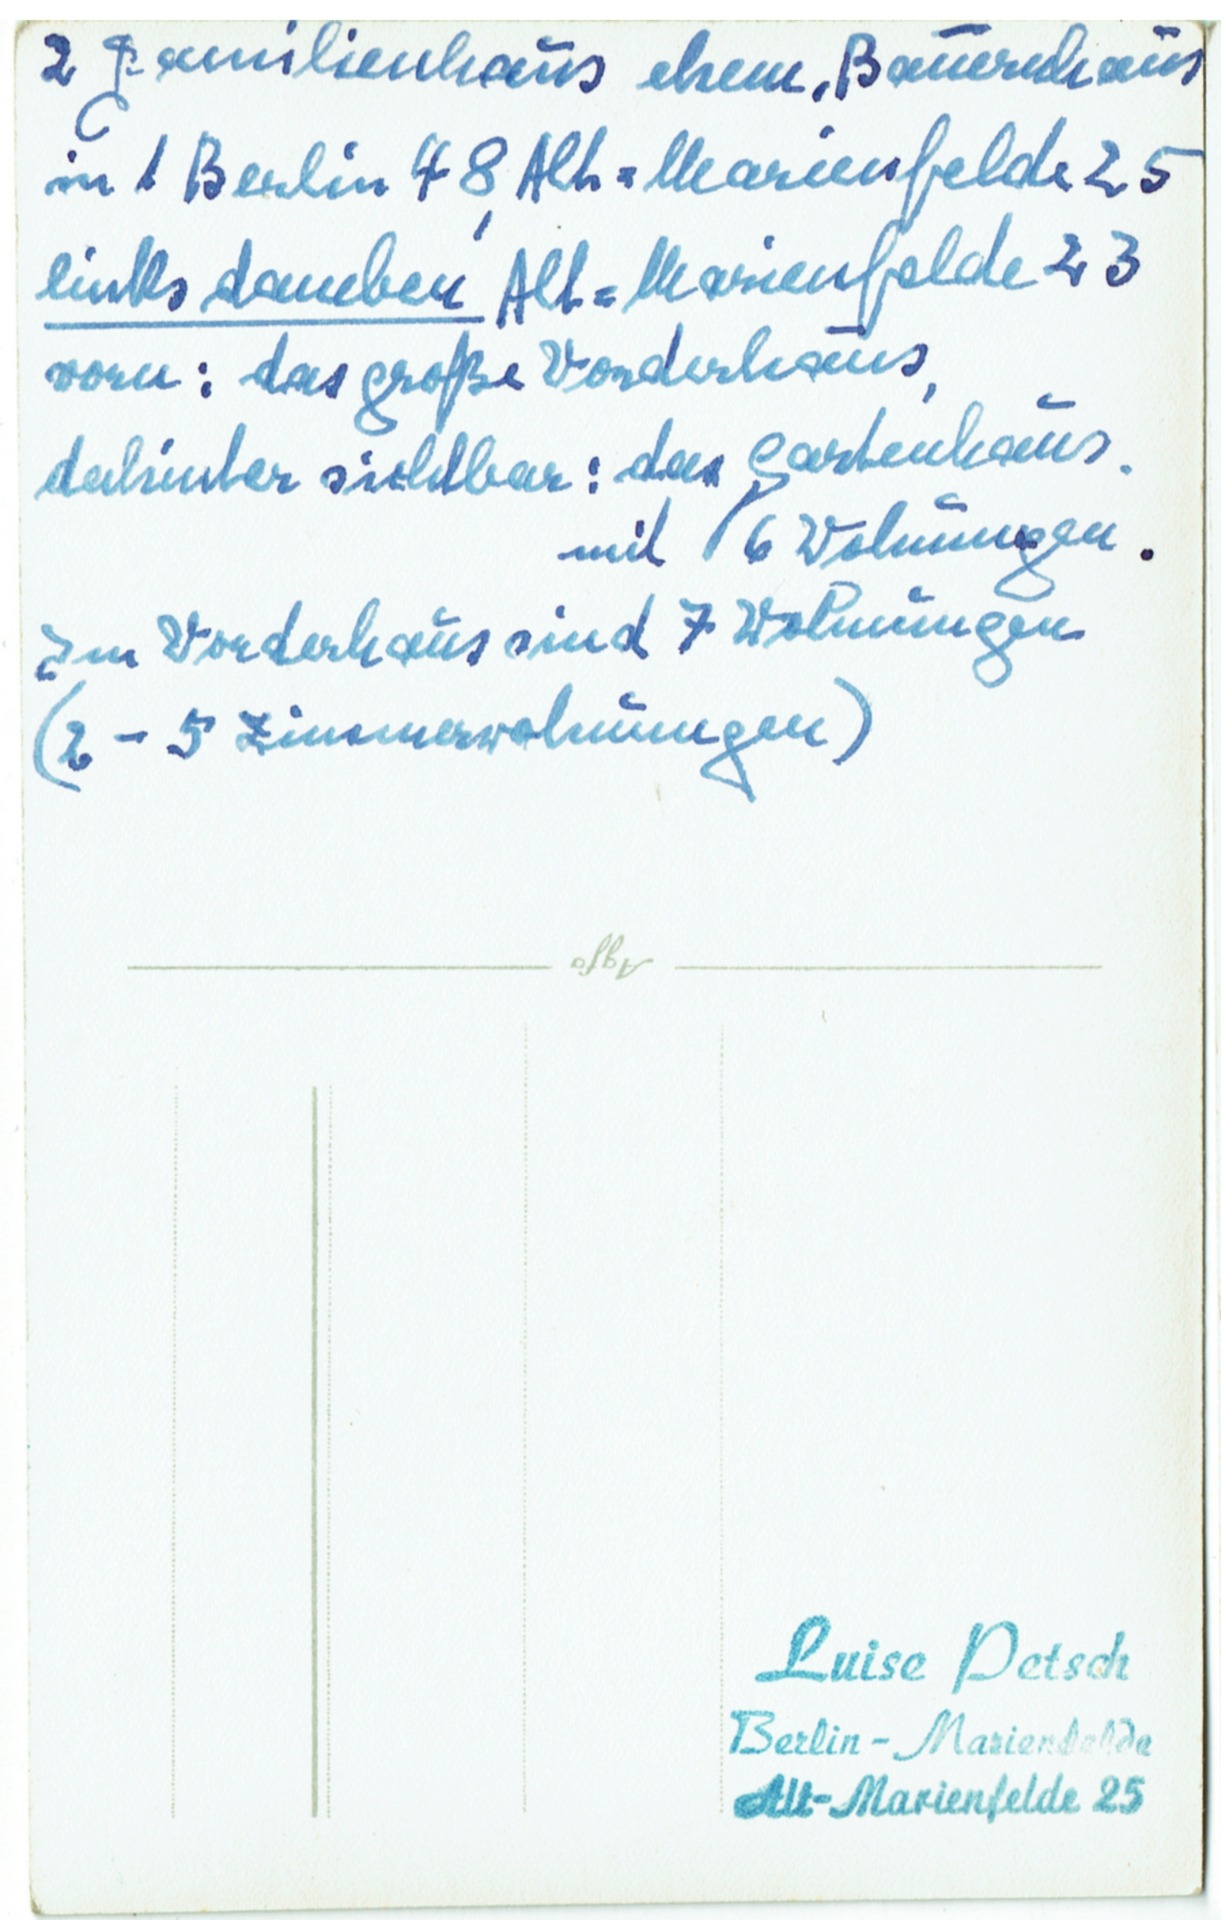 2 Familienhaus ehem. Bauernhaus
in 1 Berlin 48, Alt=Marienfelde 25
links daneben Alt=Marienfelde 23
vorn: das große Vorderhaus,
dahinter sichtbar: das Gartenhaus.
mit 6 Wohnungen.
Im Vorderhaus sind 7 Wohnungen
(2 - 5 Zimmerwohnungen)
Agfa
Luise Petsch
Berlin-Marienfelde
Alt-Marienfelde 25